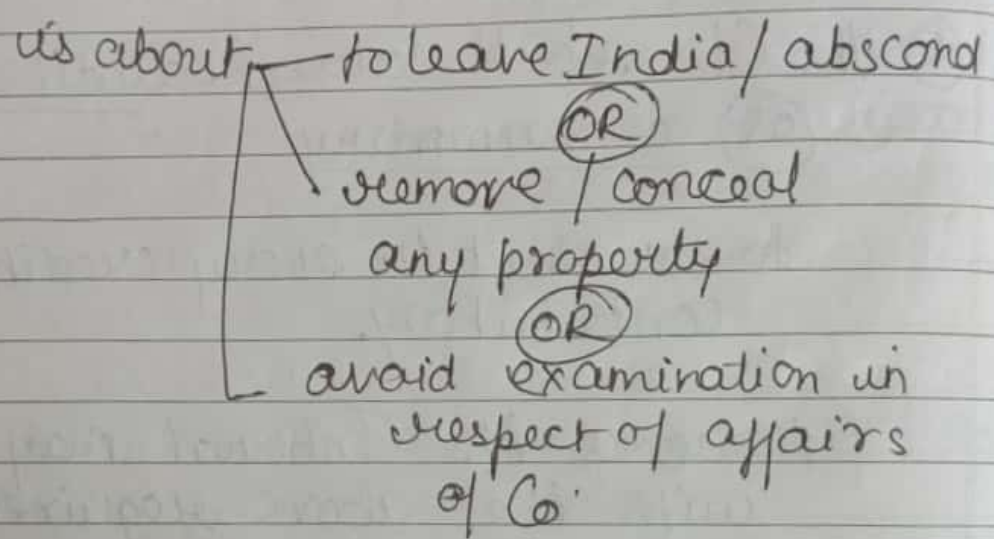 is about to leave India / abscond
OR
remove / conceal
any property
OR
avoid examination in
respect of affairs
of Co.